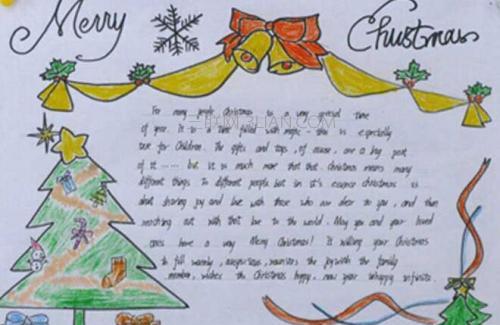 Merry Christmas
For many people Christmas is a very special time
of year. It is a time filled with magic - this is especially
true for Children. The gifts and toys, of course, are a big part
of it ...... but it is much more that that Christmas means many
different things to different people but in it's essence christmas is
about sharing joy and love with those who are dear to you, and then
reaching out with that love to the world. May you and your loved
ones have a very Merry Christmas! It willing your Christmas
to fill warmly, auspicious, the joy with the family
member, wishes the Christmas happy, new year happy infinite.
3LIAN.COM